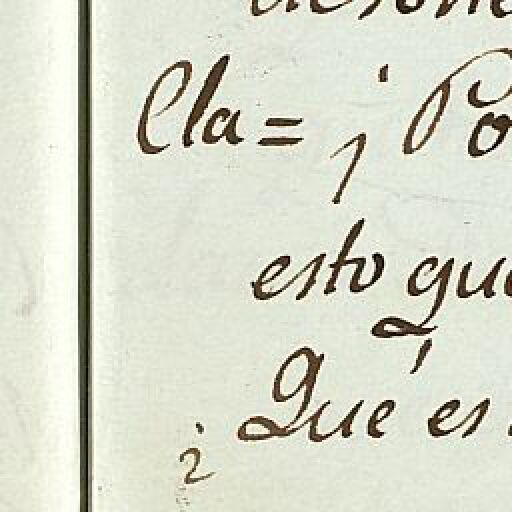 Cla= ¡Po
esto que
¿Que es